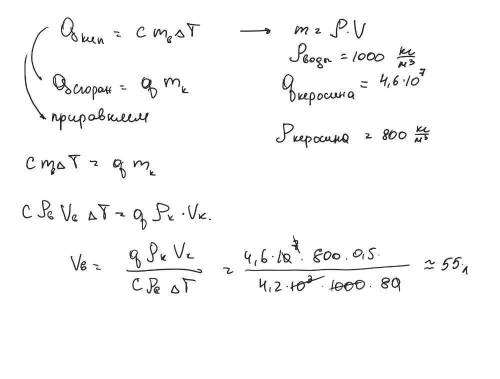 Qкип = c mв ΔT → m = ρ·V
ρводы = 1000 кг/м³
Qсгоран = q mк
qкеросина = 4,6·10⁷
приравняем
ρкеросина = 800 кг/м³
c mв ΔT = q mк
c ρв Vв ΔT = q ρк · Vк.
Vв = q ρк Vк / c ρв ΔT = 4,6·10⁷·800·0,5 / 4,2·10³·1000·80 ≈ 55 л